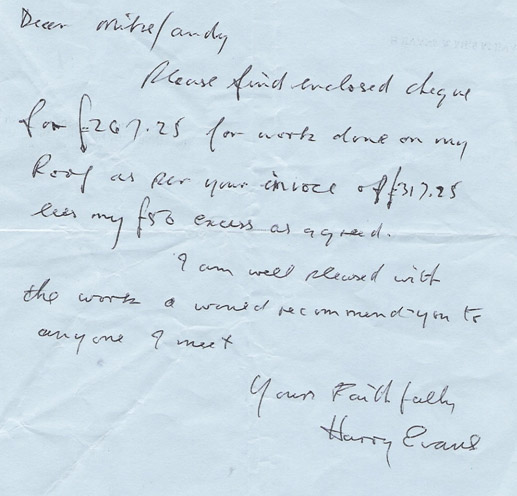 Dear Mike/Andy
Please find enclosed cheque
for £267.25 for work done on my
Roof as per your invoice of £317.25
less my £50 excess as agreed.
I am well pleased with
the work & would recommend you to
anyone I meet
Yours Faithfully
Harry Evans